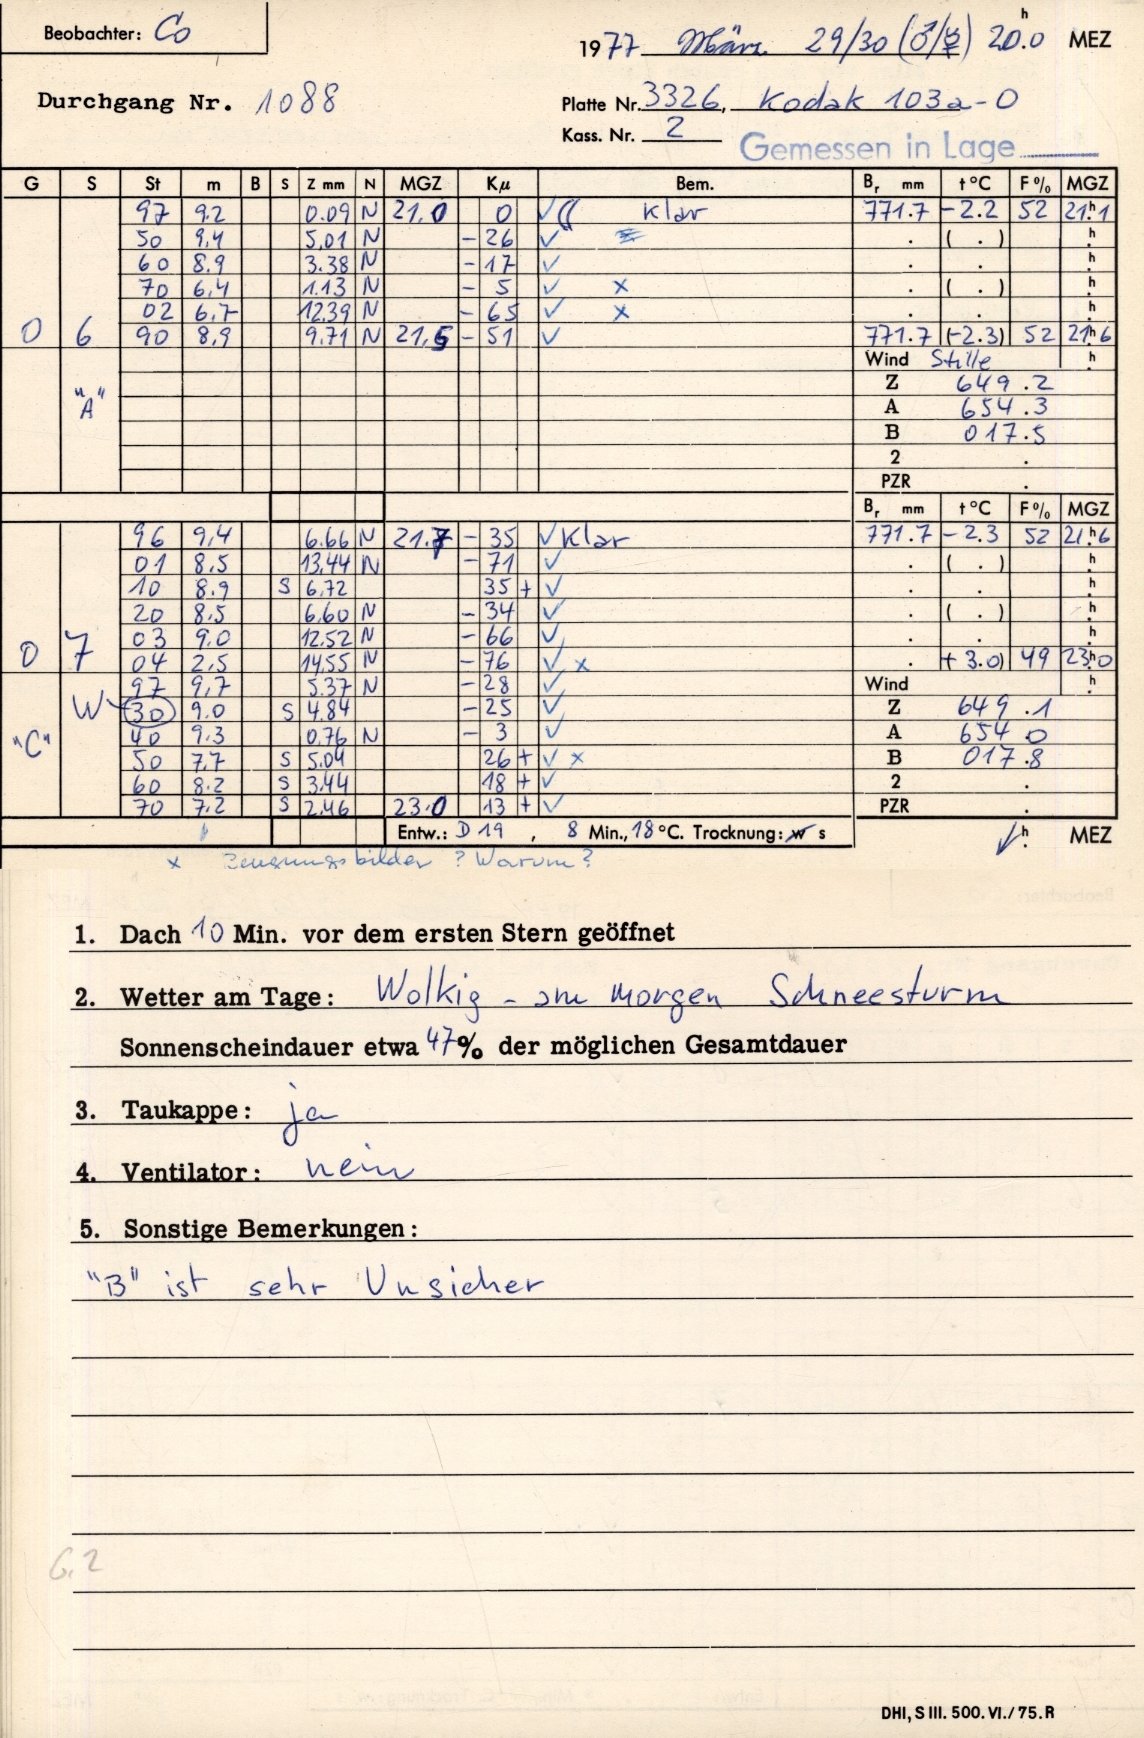 Beobachter: Co
1977 März 29/30 (♂/☿) 20.0 h MEZ
Durchgang Nr. 1088
Platte Nr. 3326, Kodak 103a-O
Kass. Nr. 2
Gemessen in Lage
G S St m B S Z mm N MGZ Kμ Bem. Br mm t °C F % MGZ
97 9.2 0.09 N 21.0 0 ✓ (( Klar 771.7 -2.2 52 21h1
50 9.4 5.01 N - 26 ✓ . ( . ) h
60 8.9 3.38 N - 17 ✓ . . h
70 6.4 1.13 N - 5 ✓ x . ( . ) h
02 6.7 12.39 N - 65 ✓ x . . h
0 6 90 8.9 9.71 N 21.6 - 51 ✓ 771.7 (-2.3) 52 21h6
Wind Stille h
"A" Z 649.2
A 654.3
B 017.5
2 .
PZR .
Br mm t °C F % MGZ
96 9.4 6.66 N 21.7 - 35 ✓ Klar 771.7 -2.3 52 21h6
01 8.5 13.44 N - 71 ✓ . ( . ) h
10 8.9 S 6.72 35 + ✓ . . h
20 8.5 6.60 N - 34 ✓ . ( . ) h
03 9.0 12.52 N - 66 ✓ . . h
0 7 04 2.5 14.55 N - 76 ✓ x . (+3.0) 49 23h0
97 9.7 5.37 N - 28 ✓ Wind h
W 30 9.0 S 4.84 - 25 ✓ Z 649.1
"C" 40 9.3 0.76 N - 3 ✓ A 654.0
50 7.7 S 5.04 26 + ✓ x B 017.8
60 8.2 S 3.44 18 + ✓ 2 .
70 7.2 S 2.46 23.0 13 + ✓ PZR .
Entw.: D 19 , 8 Min., 18 °C. Trocknung: w s ✓ h. MEZ
x Zeugungsbilder ? Warum?
1. Dach 10 Min. vor dem ersten Stern geöffnet
2. Wetter am Tage: Wolkig - am Morgen Schneesturm
Sonnenscheindauer etwa 47% der möglichen Gesamtdauer
3. Taukappe: ja
4. Ventilator: nein
5. Sonstige Bemerkungen:
"B" ist sehr Unsicher
6.2
DHI, S III. 500. VI./75. R